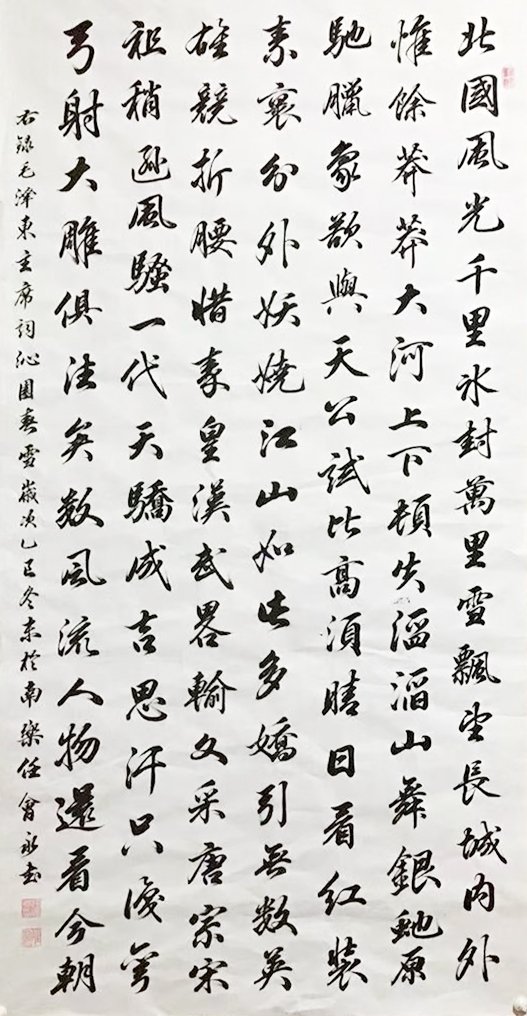 北國風光千里冰封萬里雪飄望長城内外
惟餘莽莽大河上下頓失滔滔山舞銀虵原
馳臘象欲與天公試比高須晴日看紅裝
素裹分外妖嬈江山如此多嬌引無數英
雄競折腰惜秦皇漢武畧輸文采唐宗宋
祖稍遜風騷一代天驕成吉思汗只識彎
弓射大雕俱往矣數風流人物還看今朝
右錄毛澤東主席詞沁園春雪歲次乙巳冬末於南樂任會永書